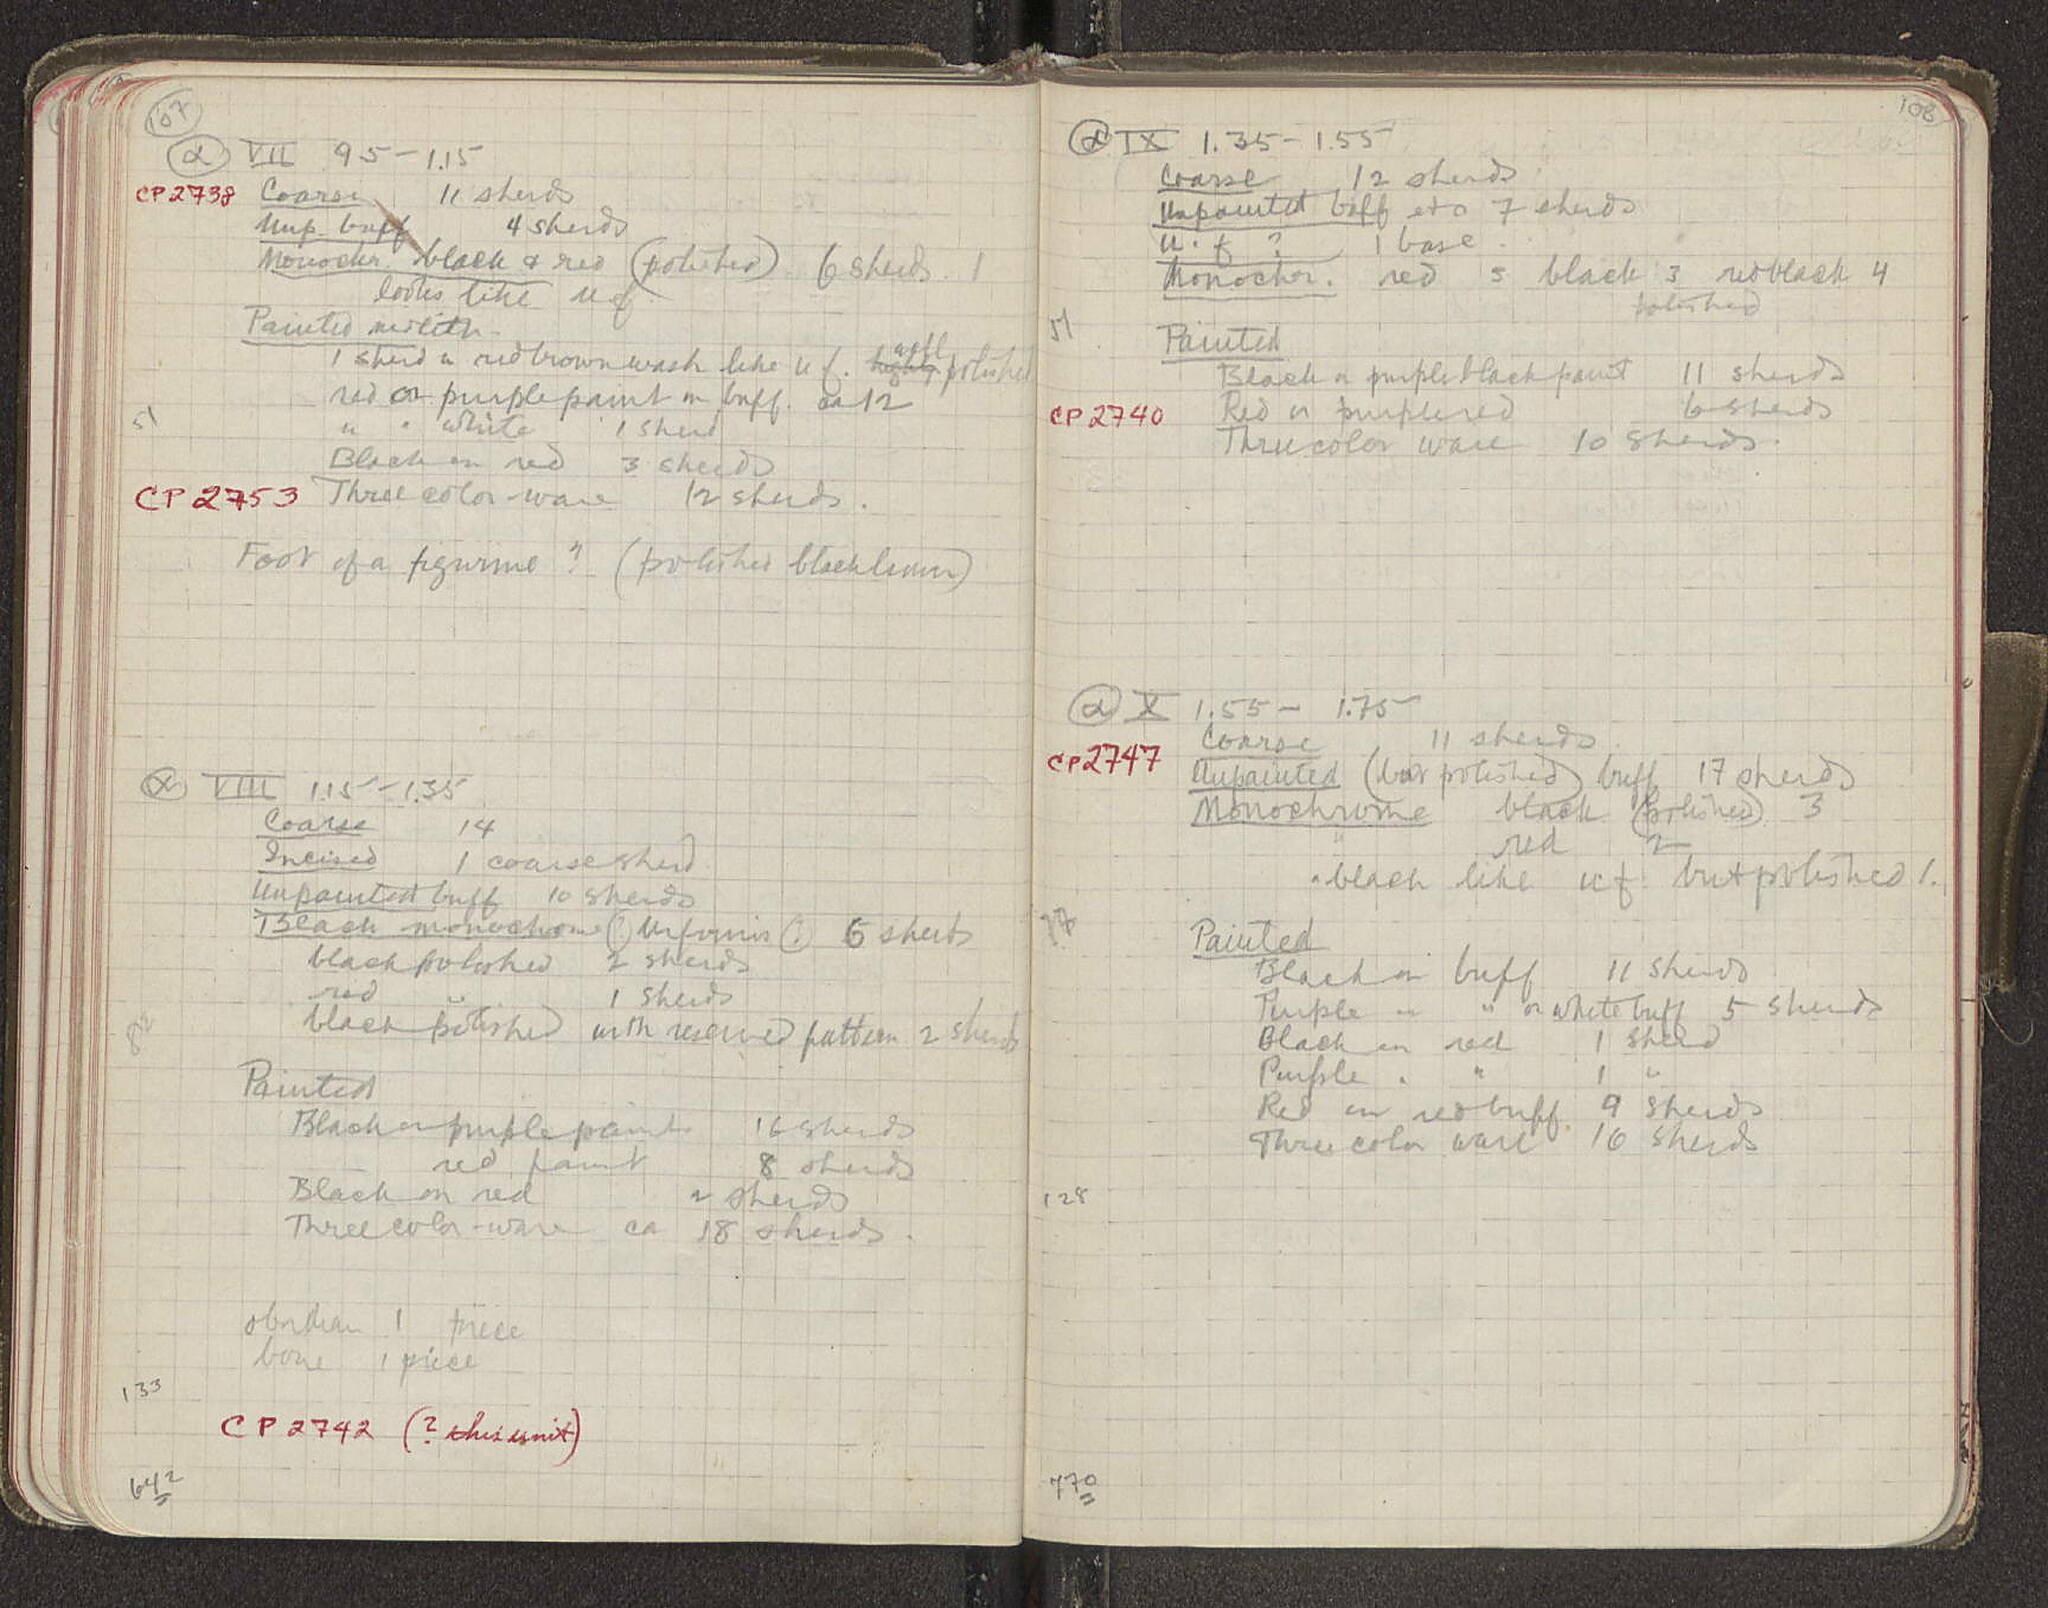 107
α VII 95-1.15
CP 2738 Coarse 11 sherds
Unp. buff 4 sherds
Monochr. black & red (polished) 6 sherds. 1
looks like u f.
Painted neolith.
1 sherd w redbrown wash like u f. well polished
red or purple paint on buff. ca 12
51
" " white 1 sherd
Black on red 3 sherds
CP 2753 Three color-ware 12 sherds.
Foot of a figurine? (polished blackbrown)
α VIII 1.15-1.35
Coarse 14
Incised 1 coarse sherd
Unpainted buff 10 sherds
Black monochrome (?) Urfirnis (?) 6 sherds
black polished 2 sherds
red " 1 sherds
black polished with reserved pattern 2 sherds
82
Painted
Black or purple paint 16 sherds
red paint 8 sherds
Black on red 2 sherds
Three color-ware ca 18 sherds.
obsidian 1 piece
bone 1 piece
133
CP 2742 (? this unit)
642
108
α IX 1.35-1.55
Coarse 12 sherds
Unpainted buff etc 7 sherds
U. f ? 1 base.
Monochr. red 5 black 3 redblack 4
polished
51
Painted
Black or purpleblack paint 11 sherds
CP 2740 Red or purplered 6 sherds
Three color ware 10 sherds.
α X 1.55- 1.75
Coarse 11 sherds.
CP 2747 Unpainted (but polished) buff 17 sherds
Monochrome black (polished) 3
" red 2
" black like uf but polished 1.
77
Painted
Black on buff 11 sherds
Purple " " or white buff 5 sherds
Black on red 1 sherd
Purple " " 1 "
Red on red buff. 9 sherds
Three color ware 16 sherds
128
770